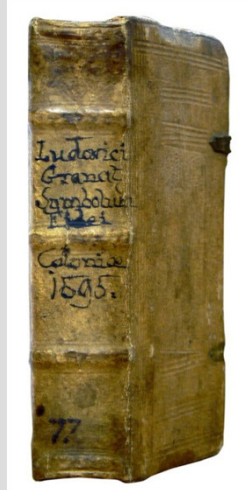 Ludovici
Granat
Symbolum
Fidei
Coloniæ
1595.
77